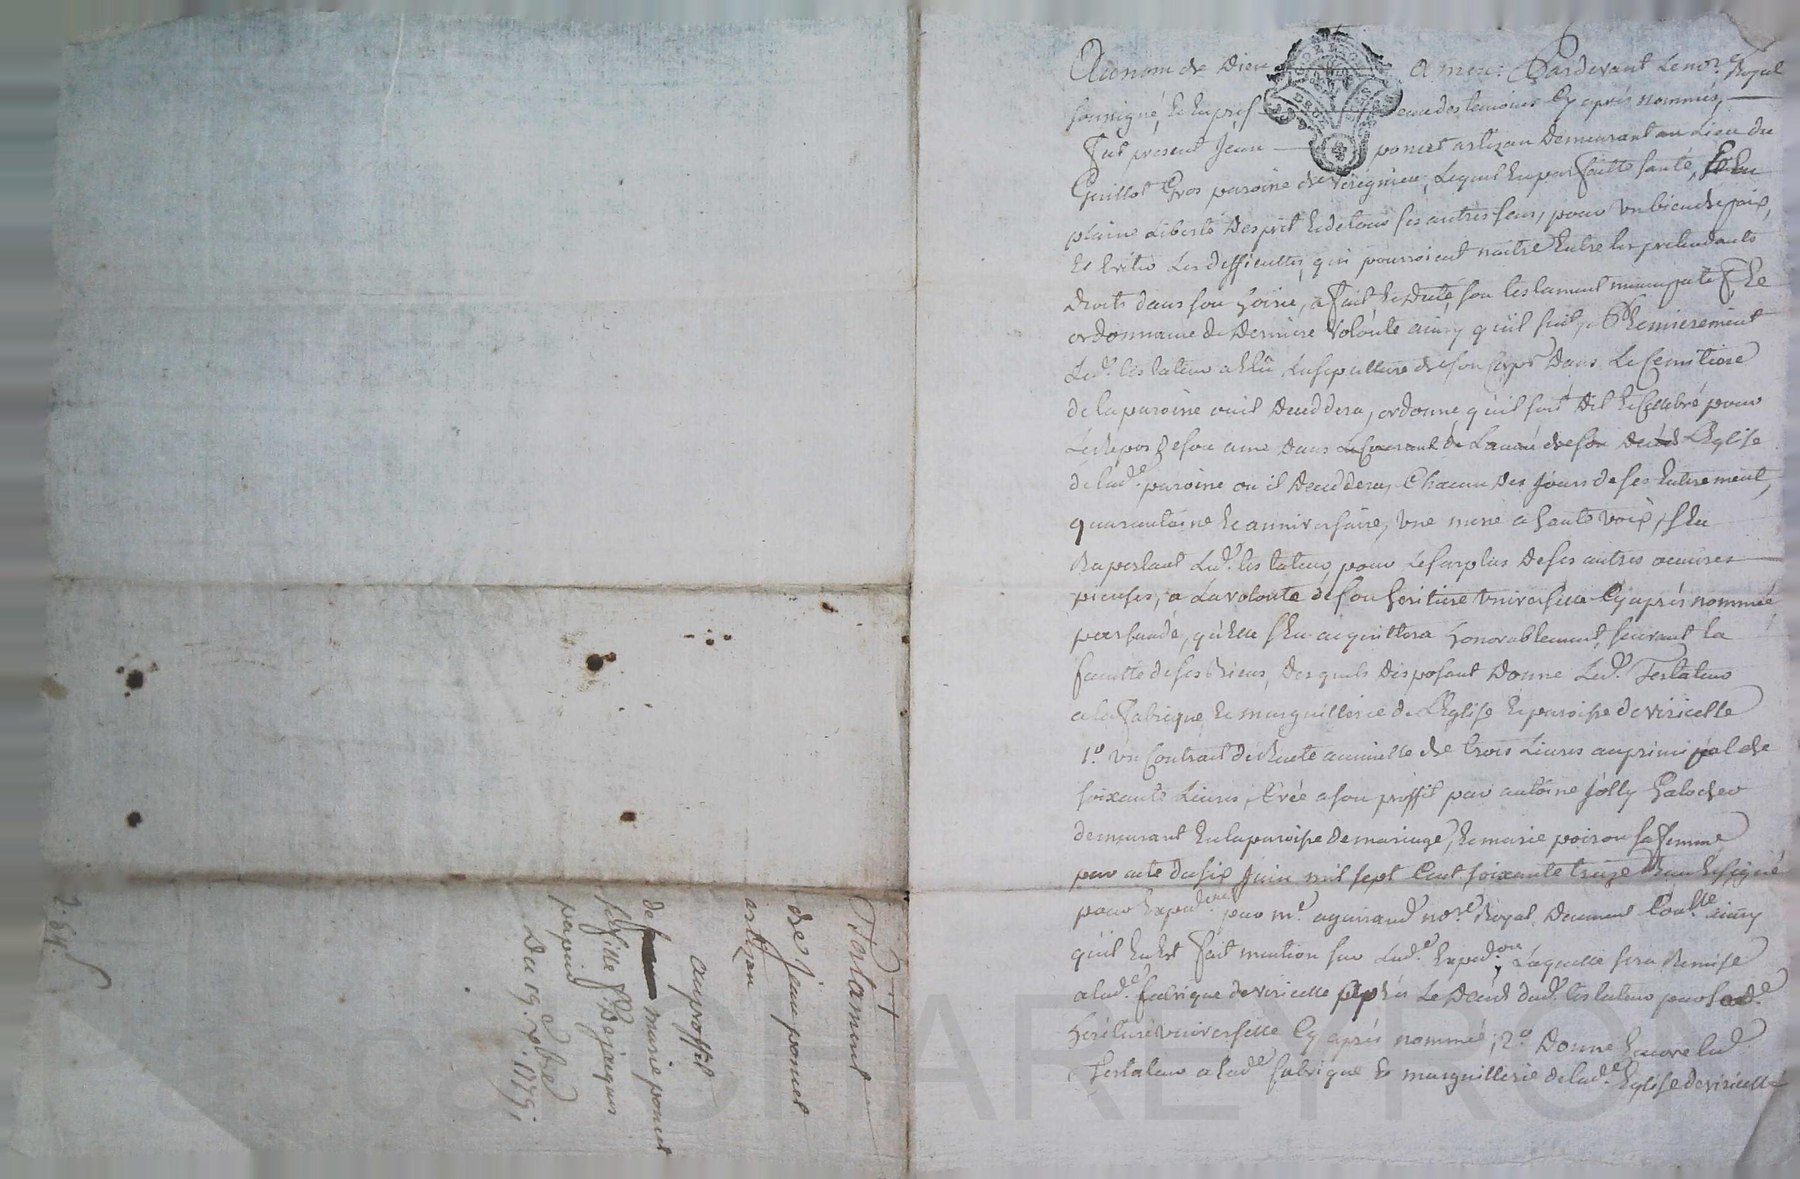 Au nom de Dieu amen : Pardevant le not.re Royal
soussigné, et en presence des temoins cy aprés nommés,
fut present Jean poncet artizan demeurant au lieu du
Guillot Gros paroisse de Viregnieu, lequel en parfaitte santé, et en
plaine liberté d'esprit et de tous ses autres sens, pour un bien de paix,
et eviter les difficultés, qui pourroient naitre entre les pretendants
droits dans son hoirie, a fait et dicté, son testament nuncupatif, et
ordonnance de derniere volonté ainsy qu'il suit, Premierement
led.t testateur a elû la sepulture de son corps dans le Cemitiere
de la paroisse ou il deceddera, ordonne qu'il soit dit et celebré pour
le repos de son ame dans le courant de l'année de son decés l'Eglise
de lad.e paroisse ou il deceddera, chacun des jours de ses enterrement,
quarantaine et anniversaire, une messe a haute voix, s'en
raportant led.t testateur pour le surplus de ses autres oeuvres
pieuses, a la volonté de son heritiere universelle cy aprés nommée
persuadé, qu'elle s'en acquittera honorablement, suivant la
faculté de ses biens, desquels disposant donne led.t Testateur
a la fabrique et marguillerie de l'Eglise et paroisse de viricelle
1.o un contrat de rente annuelle de trois livres au principal de
soixante livres, créé a son proffit par antoine Jolly Galocher
demeurant en la paroisse de maringe, et marie poison sa femme
par acte du six juin mil sept cent soixante treize
pour exped.on par m.e aguiraud not.re Royal, ainsy
qu'il en est fait mention sur lad.e exped.on laquelle sera remise
a lad.e fabrique de viricelle aprés le decés dud.t testateur par sad.e
heritiere universelle cy aprés nommée ; 2.o donne encore led.t
testateur a lad.e fabrique et marguillerie de lad.e Eglise de viricelle
Testament
de Jean poncet
artizan
au proffit
de marie poncet
sa fille f.e De jacques
papaud
Du 19.e 7bre 1779.